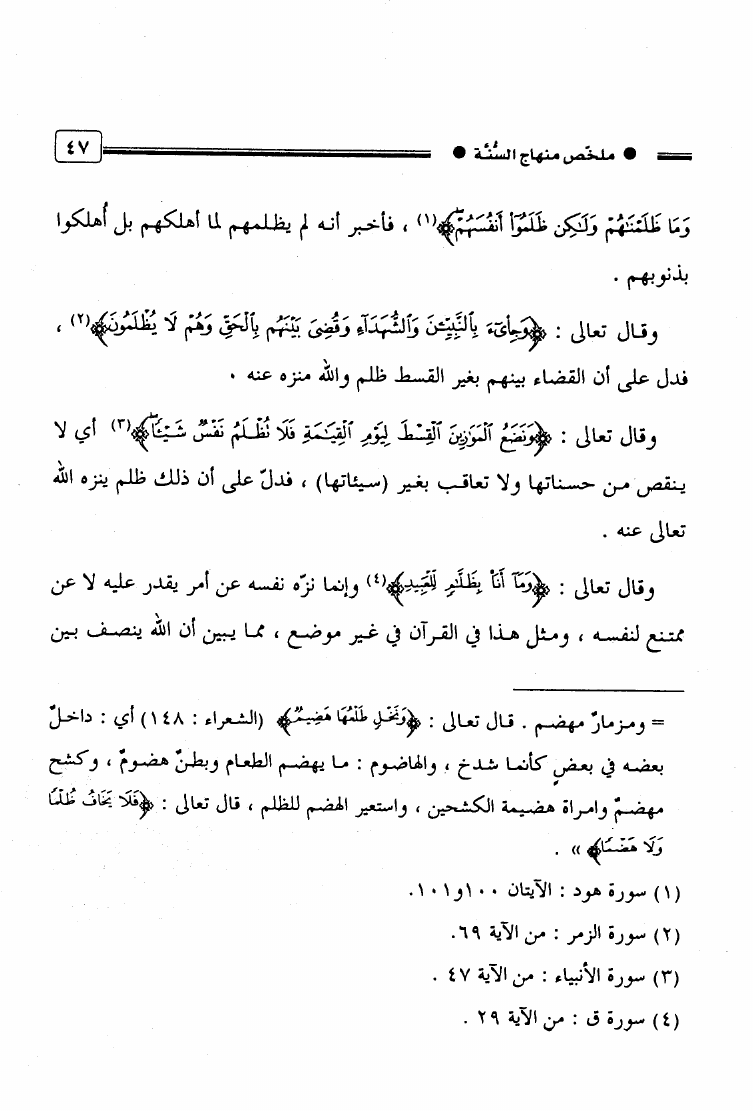 ● ملخّص منهاج السُّنَّة ● ٤٧
وَمَا ظَلَمْنَٰهُمْ وَلَٰكِن ظَلَمُوٓا۟ أَنفُسَهُمْ ۖ﴾(١) ، فأخبر أنه لم يظلمهم لما أهلكهم بل أُهلكوا
بذنوبهم .
وقال تعالى : ﴿وَجِا۟ىٓءَ بِٱلنَّبِيِّـۧنَ وَٱلشُّهَدَآءِ وَقُضِىَ بَيْنَهُم بِٱلْحَقِّ وَهُمْ لَا يُظْلَمُونَ﴾(٢) ،
فدل على أن القضاء بينهم بغير القسط ظلم والله منزه عنه .
وقال تعالى : ﴿وَنَضَعُ ٱلْمَوَٰزِينَ ٱلْقِسْطَ لِيَوْمِ ٱلْقِيَٰمَةِ فَلَا تُظْلَمُ نَفْسٌ شَيْـًٔا ۖ﴾(٣) أي لا
ينقص من حسناتها ولا تعاقب بغير (سيئاتها) ، فدلّ على أن ذلك ظلم ينزه الله
تعالى عنه .
وقال تعالى : ﴿وَمَآ أَنَا۠ بِظَلَّٰمٍ لِّلْعَبِيدِ﴾(٤) وإنما نزّه نفسه عن أمر يقدر عليه لا عن
ممتنع لنفسه ، ومثل هذا في القرآن في غير موضع ، مما يبين أن الله ينصف بين
= ومزمارٌ مهضم . قال تعالى : ﴿وَنَخْلٍ طَلْعُهَا هَضِيمٌ﴾ (الشعراء : ١٤٨) أي : داخلٌ
بعضه في بعضٍ كأنما شدخ ، والهاضوم : ما يهضم الطعام وبطنٌ هضومٌ ، وكشح
مهضمٌ وامراة هضيمة الكشحين ، واستعير الهضم للظلم ، قال تعالى : ﴿فَلَا يَخَافُ ظُلْمًا
وَلَا هَضْمًا﴾ » .
(١) سورة هود : الآيتان ١٠٠و١٠١.
(٢) سورة الزمر : من الآية ٦٩.
(٣) سورة الأنبياء : من الآية ٤٧ .
(٤) سورة ق : من الآية ٢٩ .